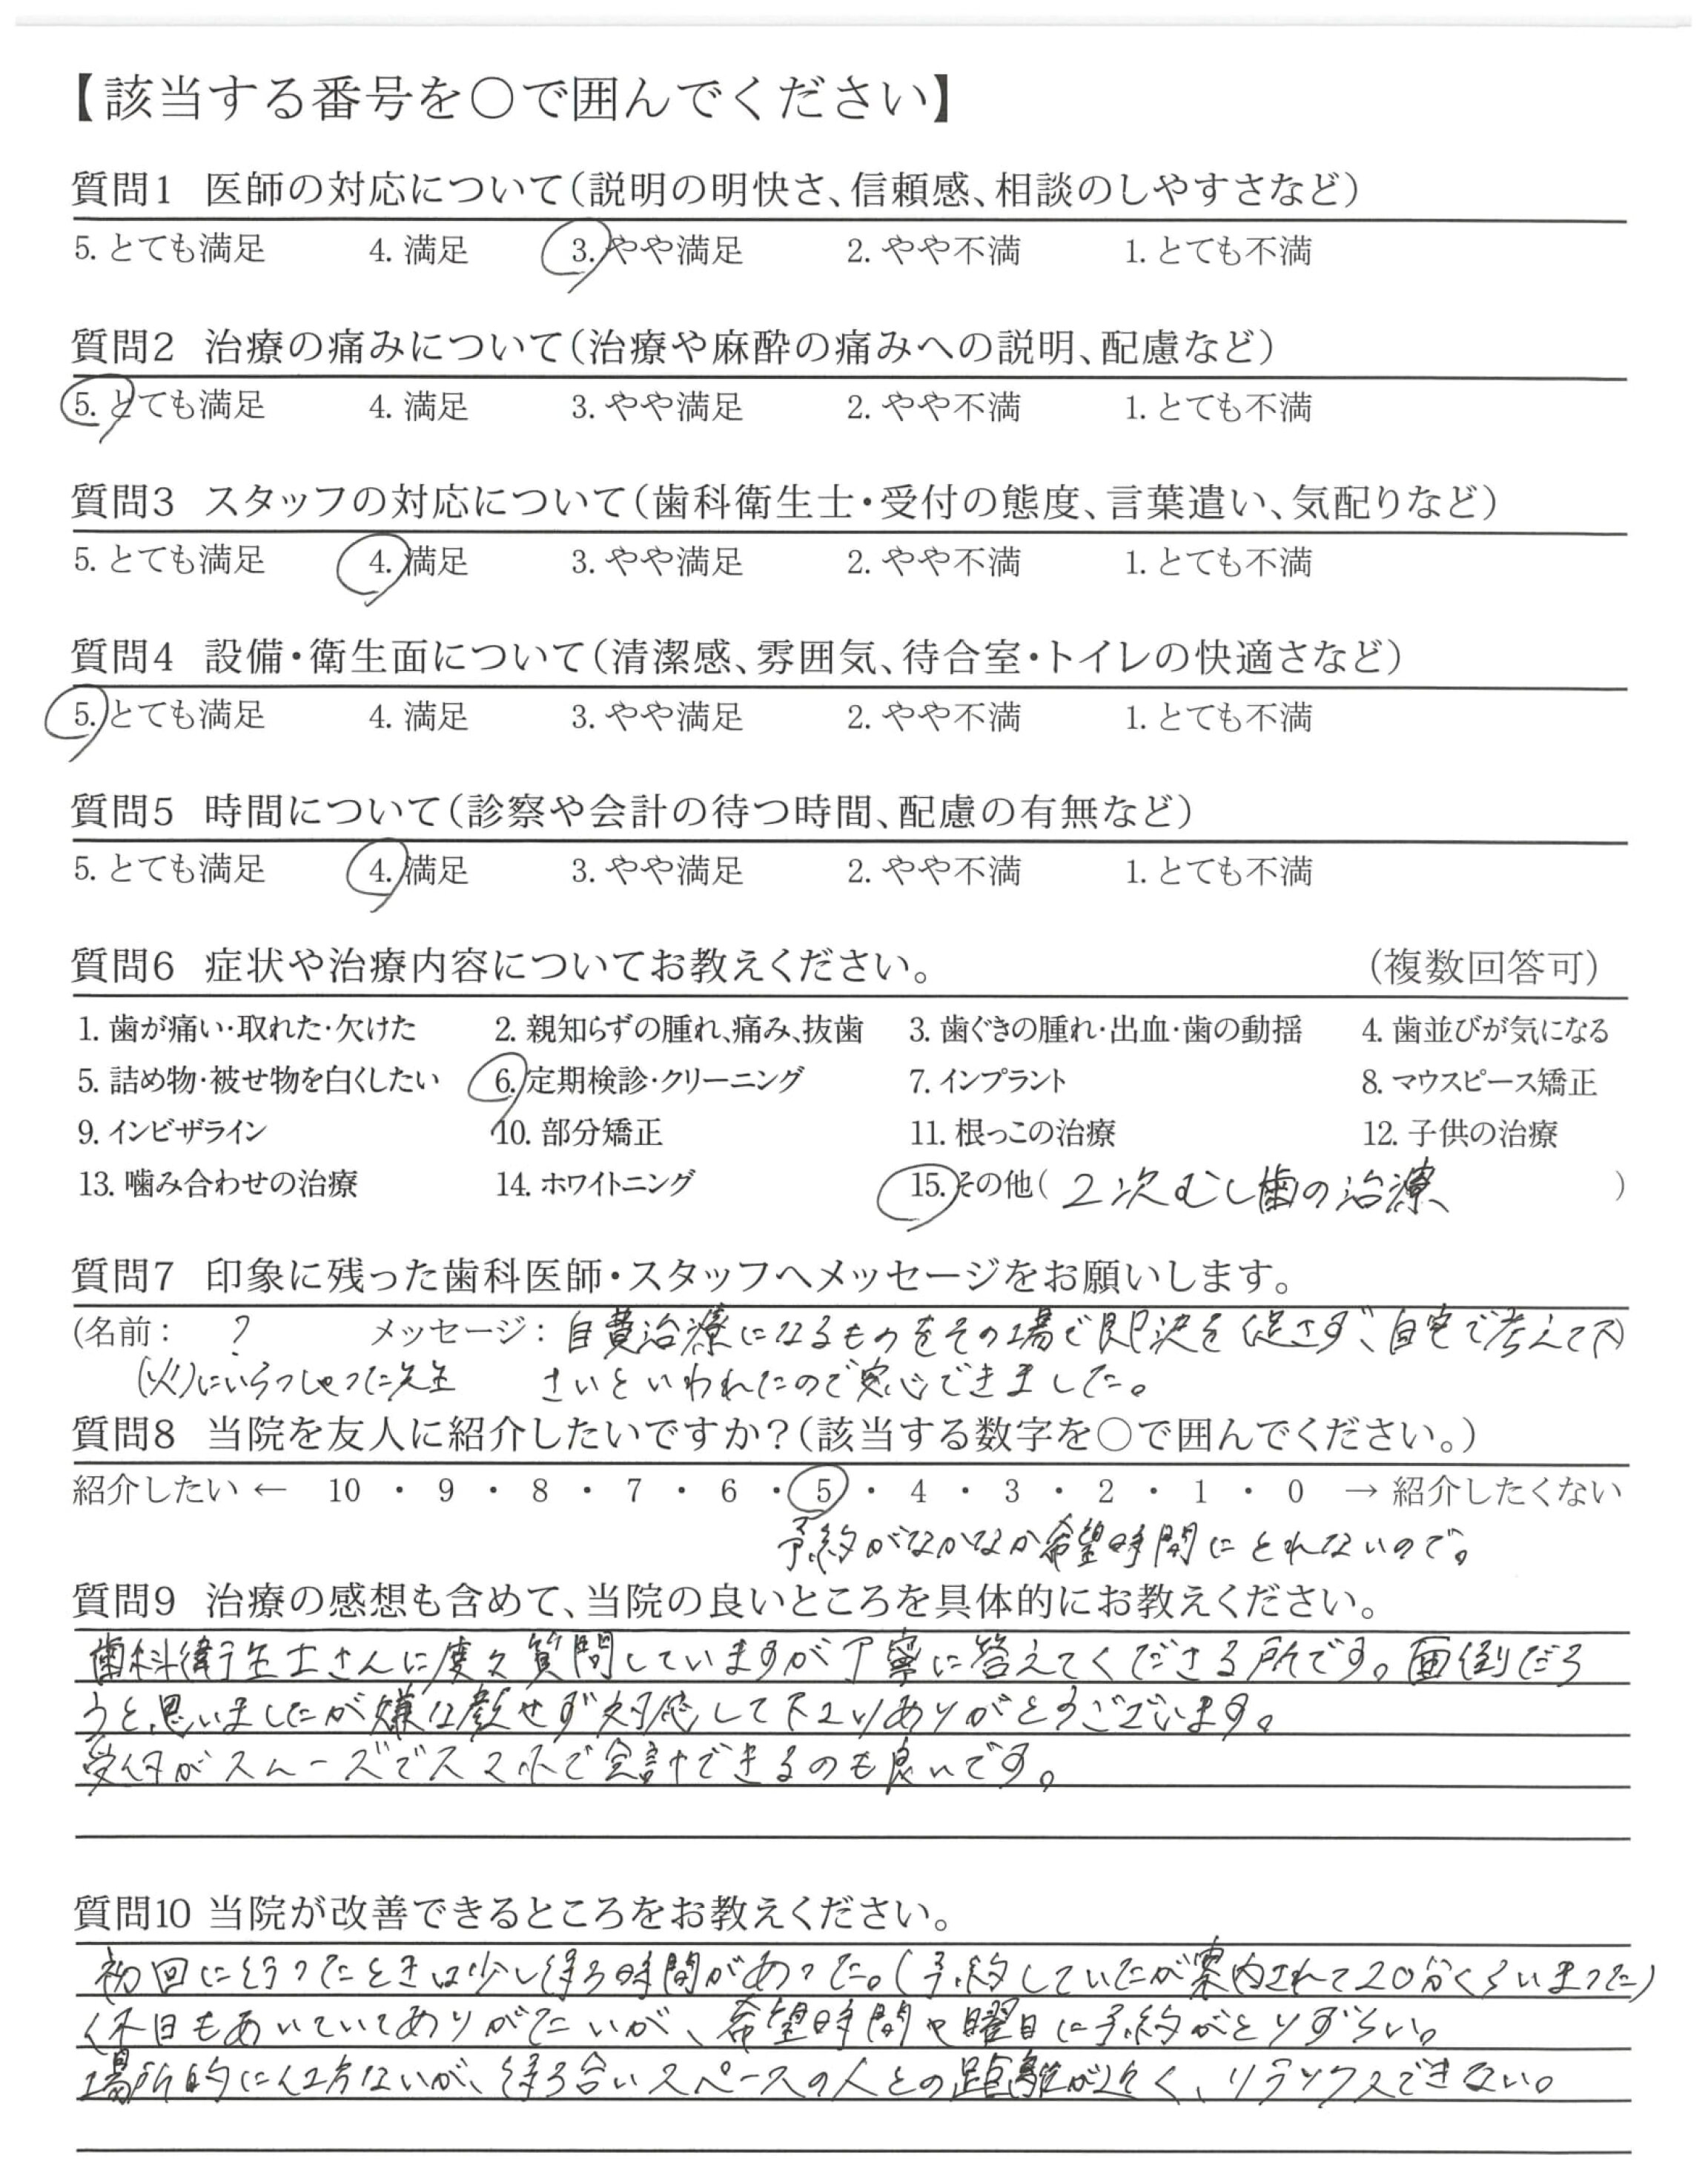 【該当する番号を〇で囲んでください】
質問1 医師の対応について(説明の明快さ、信頼感、相談のしやすさなど)
5. とても満足 4. 満足 3. やや満足 2. やや不満 1. とても不満
質問2 治療の痛みについて(治療や麻酔の痛みへの説明、配慮など)
5. とても満足 4. 満足 3. やや満足 2. やや不満 1. とても不満
質問3 スタッフの対応について(歯科衛生士・受付の態度、言葉遣い、気配りなど)
5. とても満足 4. 満足 3. やや満足 2. やや不満 1. とても不満
質問4 設備・衛生面について(清潔感、雰囲気、待合室・トイレの快適さなど)
5. とても満足 4. 満足 3. やや満足 2. やや不満 1. とても不満
質問5 時間について(診察や会計の待つ時間、配慮の有無など)
5. とても満足 4. 満足 3. やや満足 2. やや不満 1. とても不満
質問6 症状や治療内容についてお教えください。 (複数回答可)
1. 歯が痛い・取れた・欠けた 2. 親知らずの腫れ、痛み、抜歯 3. 歯ぐきの腫れ・出血・歯の動揺 4. 歯並びが気になる
5. 詰め物・被せ物を白くしたい 6. 定期検診・クリーニング 7. インプラント 8. マウスピース矯正
9. インビザライン 10. 部分矯正 11. 根っこの治療 12. 子供の治療
13. 噛み合わせの治療 14. ホワイトニング 15. その他( 2次むし歯の治療 )
質問7 印象に残った歯科医師・スタッフへメッセージをお願いします。
(名前: ? メッセージ: 自費治療になるものをその場で即決を促さず、自宅で考えて下
(火)にいらっしゃった先生 さいといわれたので安心できました。
質問8 当院を友人に紹介したいですか?(該当する数字を〇で囲んでください。)
紹介したい ← 10 ・ 9 ・ 8 ・ 7 ・ 6 ・ 5 ・ 4 ・ 3 ・ 2 ・ 1 ・ 0 → 紹介したくない
予約がなかなか希望時間にとれないので。
質問9 治療の感想も含めて、当院の良いところを具体的にお教えください。
歯科衛生士さんに度々質問していますが丁寧に答えてくださる所です。面倒だろ
うと思いましたが嫌な顔せず対応して下さりありがとうございます。
受付がスムーズでスマホで会計できるのも良いです。
質問10 当院が改善できるところをお教えください。
初回に行ったときは少し待ち時間があった。(予約していたが案内されて20分くらいまった)
休日もあいていてありがたいが、希望時間や曜日に予約がとりずらい。
場所的に仕方ないが、待ち合いスペースの人との距離が近く、リラックスできない。